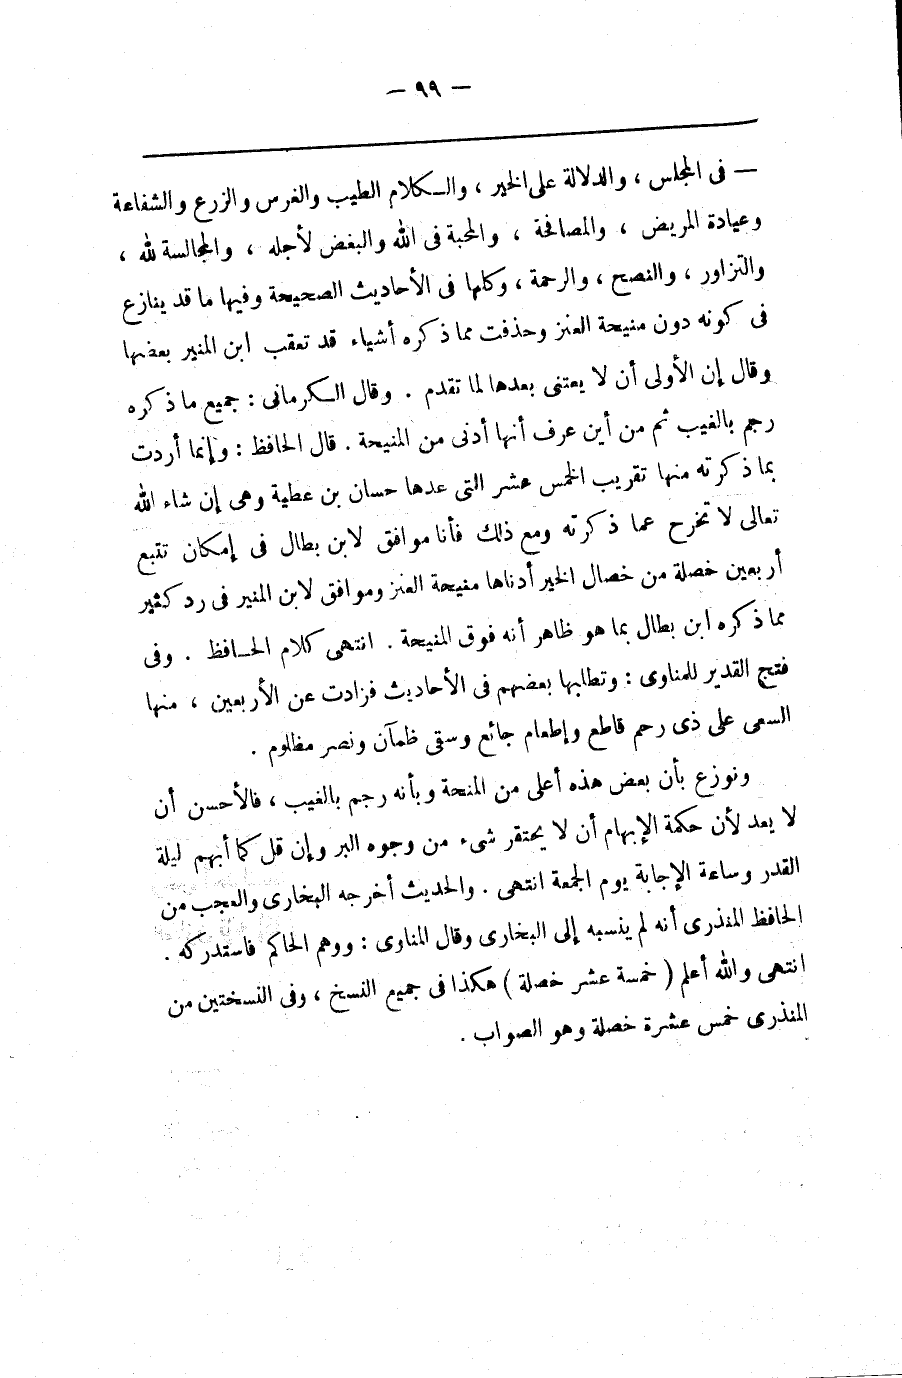 — ٩٩ —
— فى المجلس ، والدلالة على الخير ، والـكلام الطيب والغرس والزرع والشفاعة
وعيادة المريض ، والمصافحة ، والمحبة فى الله والبغض لأجله ، والمجالسة لله ،
والتزاور ، والنصح ، والرحمة ، وكلها فى الأحاديث الصحيحة وفيها ما قد ينازع
فى كونه دون منيحة العنز وحذفت مما ذكره أشياء قد تعقب ابن المنير بعضها
وقال إن الأولى أن لا يعتنى بعدها لما تقدم . وقال الـكرمانى : جميع ما ذكره
رجم بالغيب ثم من أين عرف أنها أدنى من المنيحة . قال الحافظ : وإنما أردت
بما ذكرته منها تقريب الخمس عشر التى عدها حسان بن عطية وهى إن شاء الله
تعالى لا تخرح عما ذكرته ومع ذلك فأنا موافق لابن بطال فى إمكان تتبع
أربعين خصلة من خصال الخير أدناها منيحة العنز وموافق لابن المنير فى رد كثير
مما ذكره ابن بطال بما هو ظاهر أنه فوق المنيحة . انتهى كلام الحـافظ . وفى
فتح القدير للمناوى : وتطلبها بعضهم فى الأحاديث فزادت عن الأربعين ، منها
السعى على ذى رحم قاطع وإطعام جائع وسقى ظمآن ونصر مظلوم .
ونوزع بأن بعض هذه أعلى من المنحة وبأنه رجم بالغيب ، فالأحسن أن
لا يعد لأن حكمة الإبهام أن لا يحتقر شىء من وجوه البر وإن قل كما أبهم ليلة
القدر وساعة الإجابة يوم الجمعة انتهى . والحديث أخرجه البخارى والعجب من
الحافظ المنذرى أنه لم ينسبه إلى البخارى وقال المناوى : ووهم الحاكم فاستدركه .
انتهى والله أعلم ( خمسة عشر خصلة ) هكذا فى جميع النسخ ، وفى النسختين من
المنذرى خمس عشرة خصلة وهو الصواب .